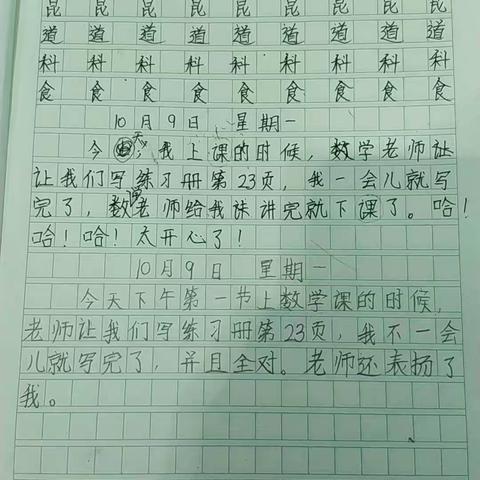 昆 昆 昆 昆 昆 昆 昆 昆 昆
道 道 道 道 道 道 道 道 道
科 科 科 科 科 科 科 科 科
食 食 食 食 食 食 食 食 食
10月9日 星期一
今天,我上课的时候,数学老师让
让我们写练习册第23页,我一会儿就写
完了,数学老师给我讲完就下课了。哈!
哈!哈!太开心了!
10月9日 星期一
今天下午第一节上数学课的时候,
老师让我们写练习册第23页,我不一会
儿就写完了,并且全对。老师还表扬了
我。